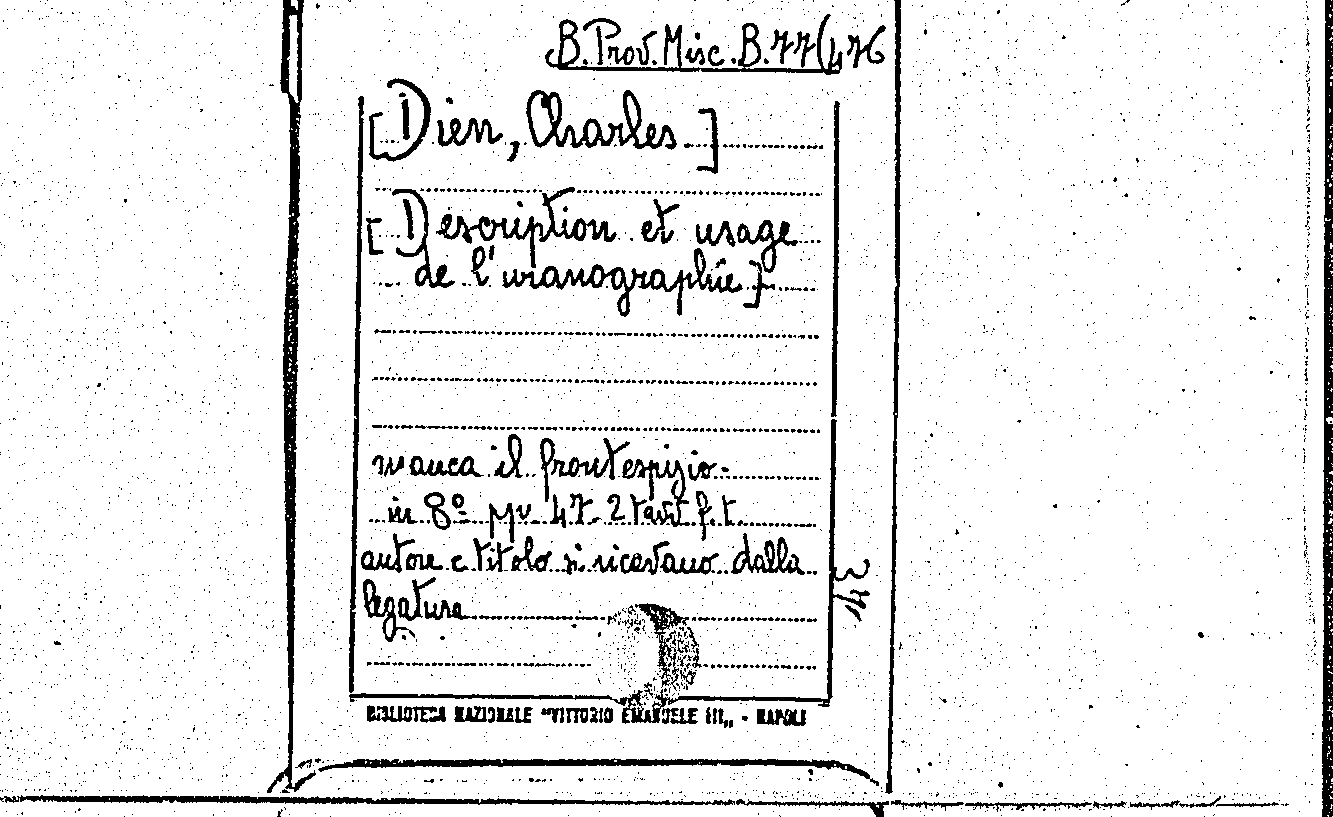 B. Prov. Misc. B. 77(476
[Dien, Charles.]
[Description et usage
de l'uranographie]
manca il frontespizio.
in 8º pp. 47. 2 tavv f.t.
autore e titolo si ricavano dalla
legatura
BIBLIOTECA NAZIONALE "VITTORIO EMANUELE III„ - NAPOLI